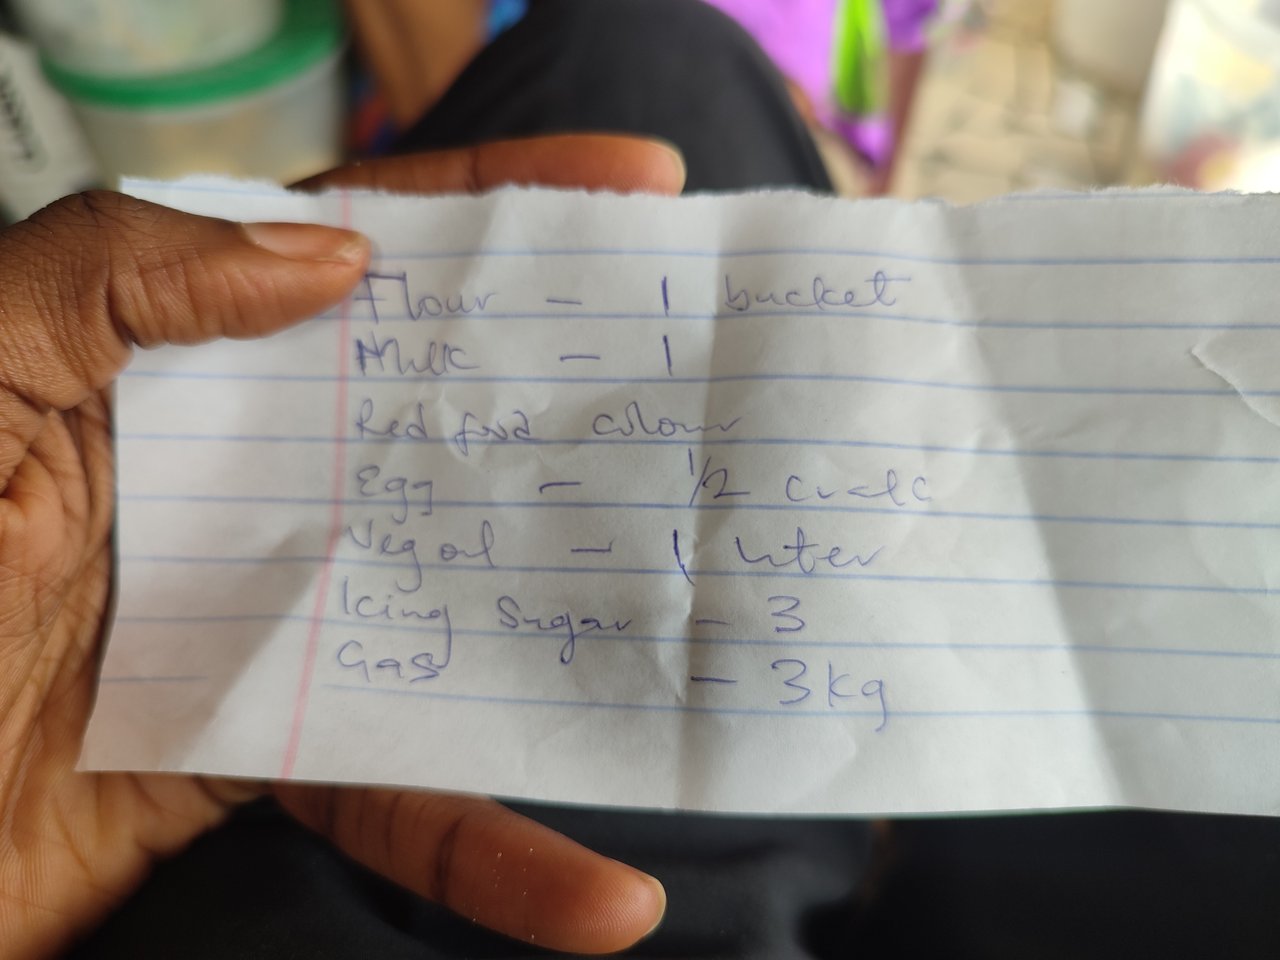 Flour - 1 bucket
Milk - 1
Red food colour
Egg - 1/2
Veg oil - 1 liter
Icing Sugar - 3
Gas - 3kg